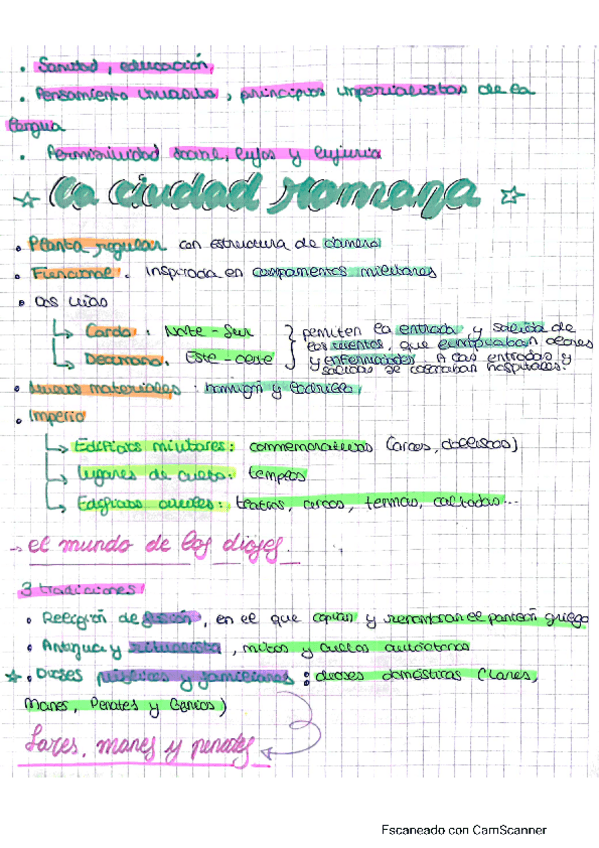 • Sanidad, educación
• Pensamiento , principios imperialistas de la
lengua
• Permisividad social, lujos y lujuria
☆ La ciudad romana ☆
• Planta regular con estructura de damero
• Funcional. Inspirada en campamentos militares
• Dos vías
↳ Cardo: Norte - Sur } permiten la entrada y salida de
los vientos, que olores
↳ Decumano. Este - oeste y enfermedades. A las entradas y
salidas se colocaban hospitales.
• Nuevos materiales: hormigón y ladrillo
• Imperio
↳ Edificios militares: conmemorativos (arcos, obeliscos)
↳ Lugares de culto: templos
↳ Edificios civiles: teatros, arcos, termas, calzadas...
→ el mundo de los dioses
3 tradiciones
• Religión de fusión, en el que copian y renombran el panteón griego
• Antigua y , mitos y cultos autóctonos
☆ • Dioses y familiares: dioses domésticos (Lares,
Manes, Penates y Genios)
Lares, manes y penates
Escaneado con CamScanner